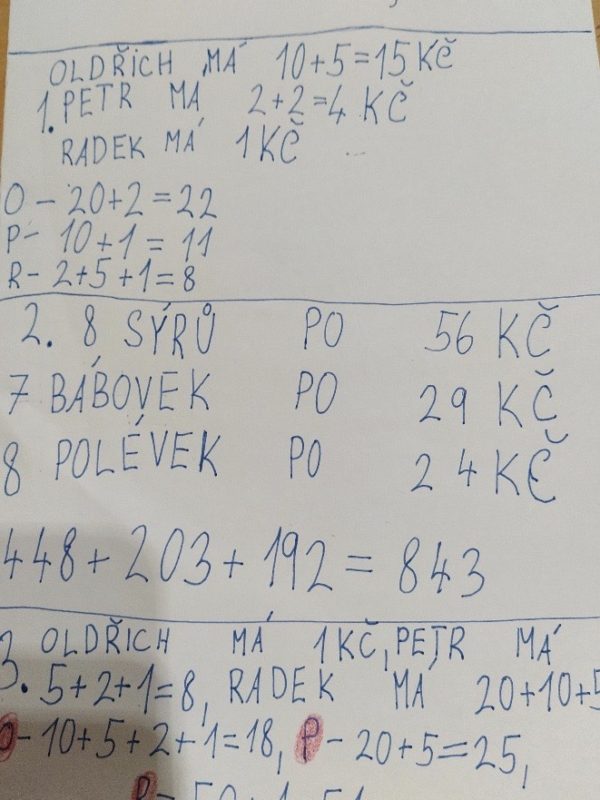 OLDŘICH MÁ 10+5=15 KČ
1. PETR MÁ 2+2=4 KČ
RADEK MÁ 1 KČ
O - 20+2=22
P- 10+1= 11
R- 2+5+1=8
2. 8 SÝRŮ PO 56 KČ
7 BÁBOVEK PO 29 KČ
8 POLÉVEK PO 24 KČ
448+203+192=843
3. OLDŘICH MÁ 1KČ, PETR MÁ
5+2+1=8, RADEK MÁ 20+10+5
O-10+5+2+1=18, P-20+5=25,